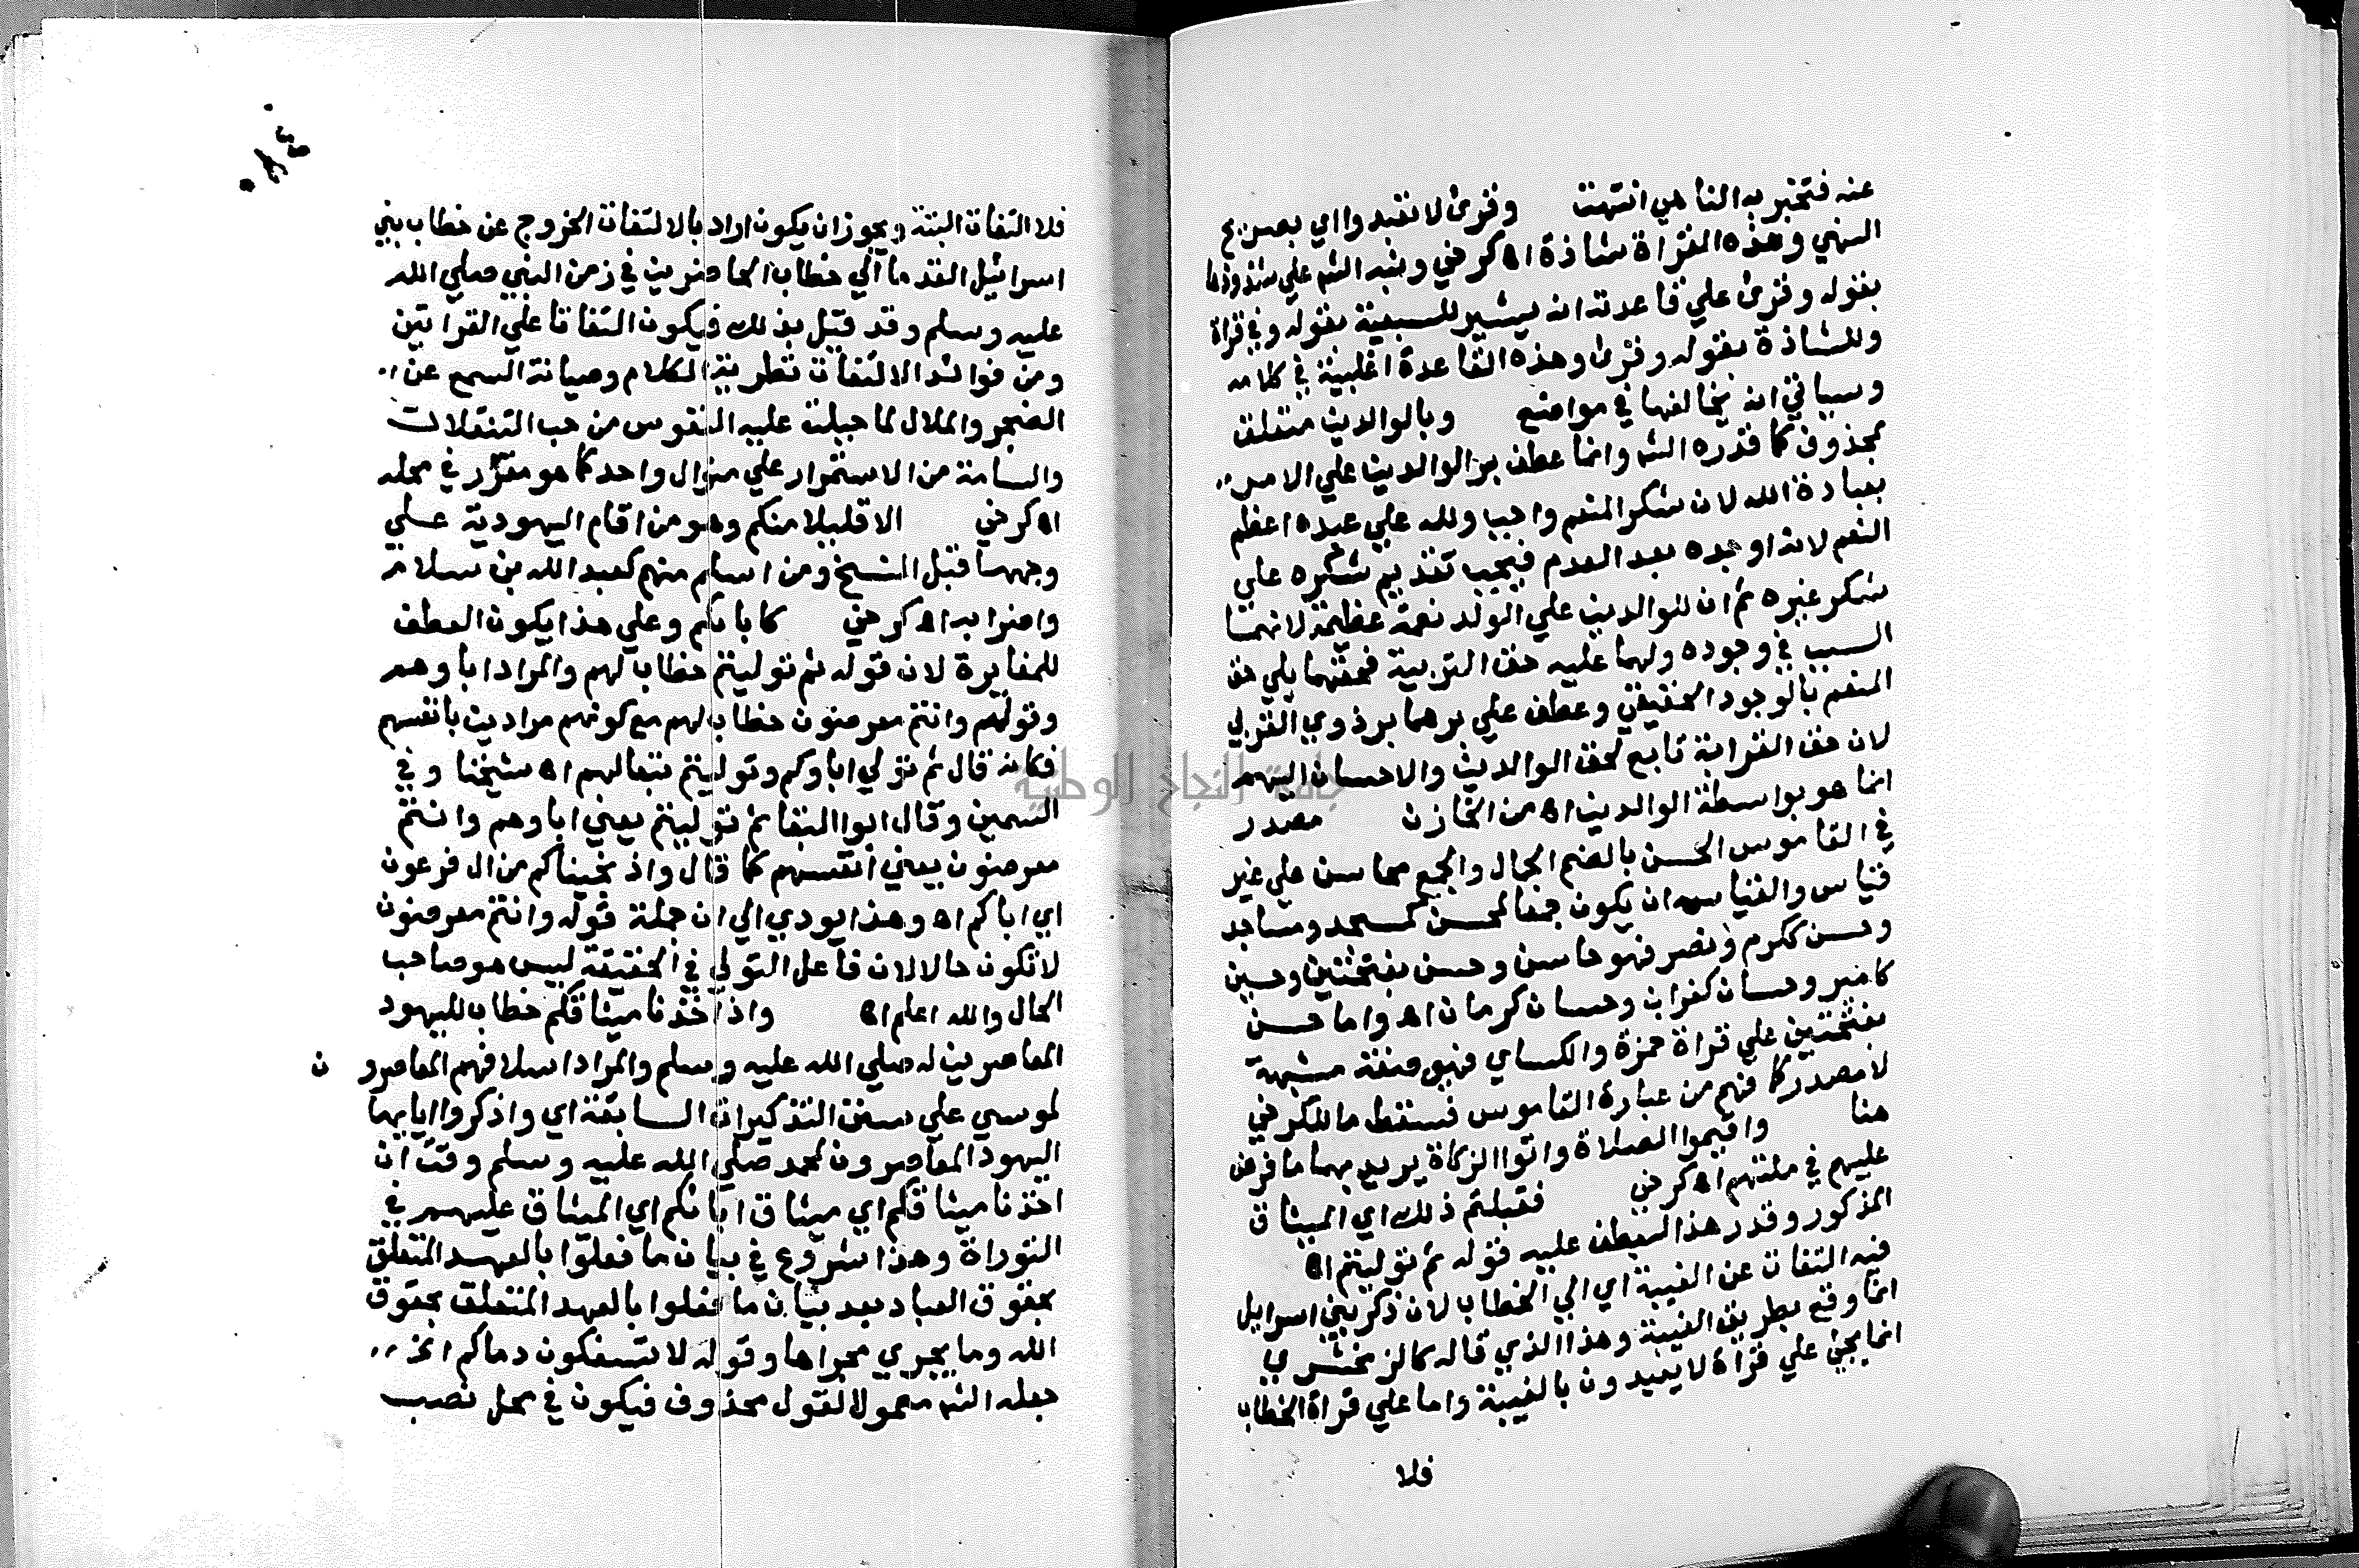 عنه فتخبر به الناهي انتهت وقرئ لا تعبدوا اي بصريح
النهي وهذه القراة شاذة اه كرخي ونبه الشه علي شذوذها
بقوله وقرئ علي قاعدته انه يشير للسبعية بقوله وفي قراة
وللشاذة بقوله وقرئ وهذه القاعدة اغلبية في كلامه
وسياتي انه يخالفها في مواضع وبالوالدين متعلق
بمحذوف كما قدره الشه وانما عطف بر الوالدين علي الامر
بعبادة الله لان شكر المنعم واجب ولله علي عبده اعظم
النعم لانه اوجده بعد العدم فيجب تقديم شكره علي
شكر غيره ثم ان للوالدين علي الولد نعمة عظيمة لانهما
السبب في وجوده ولهما عليه حق التربية فحقهما يلي حق
المنعم بالوجود الحقيقي وعطف علي برهما بر ذوي القربي
لان حق القرابة تابع لحق الوالدين والاحسان اليهم
انما هو بواسطة الوالدين اه من الخازن مصدر
في القاموس الحسن بالضم الجمال والجمع محاسن علي غير
قياس والقياس ان يكون جمعا لمحسن كمسجد ومساجد
وحسن ككرم ونصر فهو حاسن وحسن بفتحتين وحسين
كامير وحسان كغراب وحسان كرمان اه واما حسن
بفتحتين علي قراة حمزة والكساي فهو صفة مشبهة
لا مصدر كما فهم من عبارة القاموس فسقط ما للكرخي
هنا واقيموا الصلاة واتوا الزكاة يريد بهما ما فرض
عليهم في ملتهم اه كرخي فقبلتم ذلك اي الميثاق
المذكور وقدر هذا ليعطف عليه قوله ثم توليتم اه
فيه التفات عن الغيبة اي الي الخطاب لان ذكر بني اسرايل
انما وقع بطريق الغيبة وهذا الذي قاله كالزمخشري
انما يجئ علي قراة لا يعبدون بالغيبة واما علي قراة الخطاب
فلا
٠٨٤
فلا التفات البتة ويجوز ان يكون اراد بالالتفات الخروج عن خطاب بني
اسرائيل القدما الي خطاب الحاضرين في زمن النبي صلي الله
عليه وسلم وقد قيل بذلك فيكون التفاتا علي القراتين
ومن فوائد الالتفات تطرية الكلام وصيانة السمع عن
الضجر والملال لما جبلت عليه النفوس من حب التنقلات
والسامة من الاستمرار علي منوال واحد كما هو مقرر في محله
اه كرخي الا قليلا منكم وهو من اقام اليهودية علي
وجهها قبل النسخ ومن اسلم منهم كعبد الله بن سلام
واضرابه اه كرخي كابائكم وعلي هذا يكون العطف
للمغايرة لان قوله ثم توليتم خطاب لهم والمراد اباوهم
وتولهم وانتم معرضون خطاب لهم مع كونهم مرادين بانفسهم
فكانه قال ثم تولي اباوكم وتوليتم تبعا لهم اه شيخنا وفي
السمين وقال ابوا البقا ثم توليتم يعني اباوهم وانتم
معرضون يعني انفسهم كما قال واذ نجيناكم من ال فرعون
اي اباكم اه وهذا يودي الي ان جملة قوله وانتم معرضون
لا تكون حالا لان فاعل التولي في الحقيقة ليس هو صاحب
الحال والله اعلم اه واذ اخذنا ميثاقكم خطاب لليهود
المعاصرين له صلي الله عليه وسلم والمراد اسلافهم المعاصرون
لموسي علي سنن التذكيرات السابقة اي واذكروا ايايها
اليهود المعاصرون لمحمد صلي الله عليه وسلم وقت ان
اخذنا ميثاقكم اي ميثاق ابائكم اي الميثاق عليهم في
التوراة وهذا شروع في بيان ما فعلوا بالعهد المتعلق
بحقوق العباد بعد بيان ما فعلوا بالعهد المتعلق بحقوق
الله وما يجري مجراها وقوله لا تسفكون دماكم الخ
جعله الشه معمولا لقول محذوف فيكون في محل نصب
جامعة النجاح الوطنية